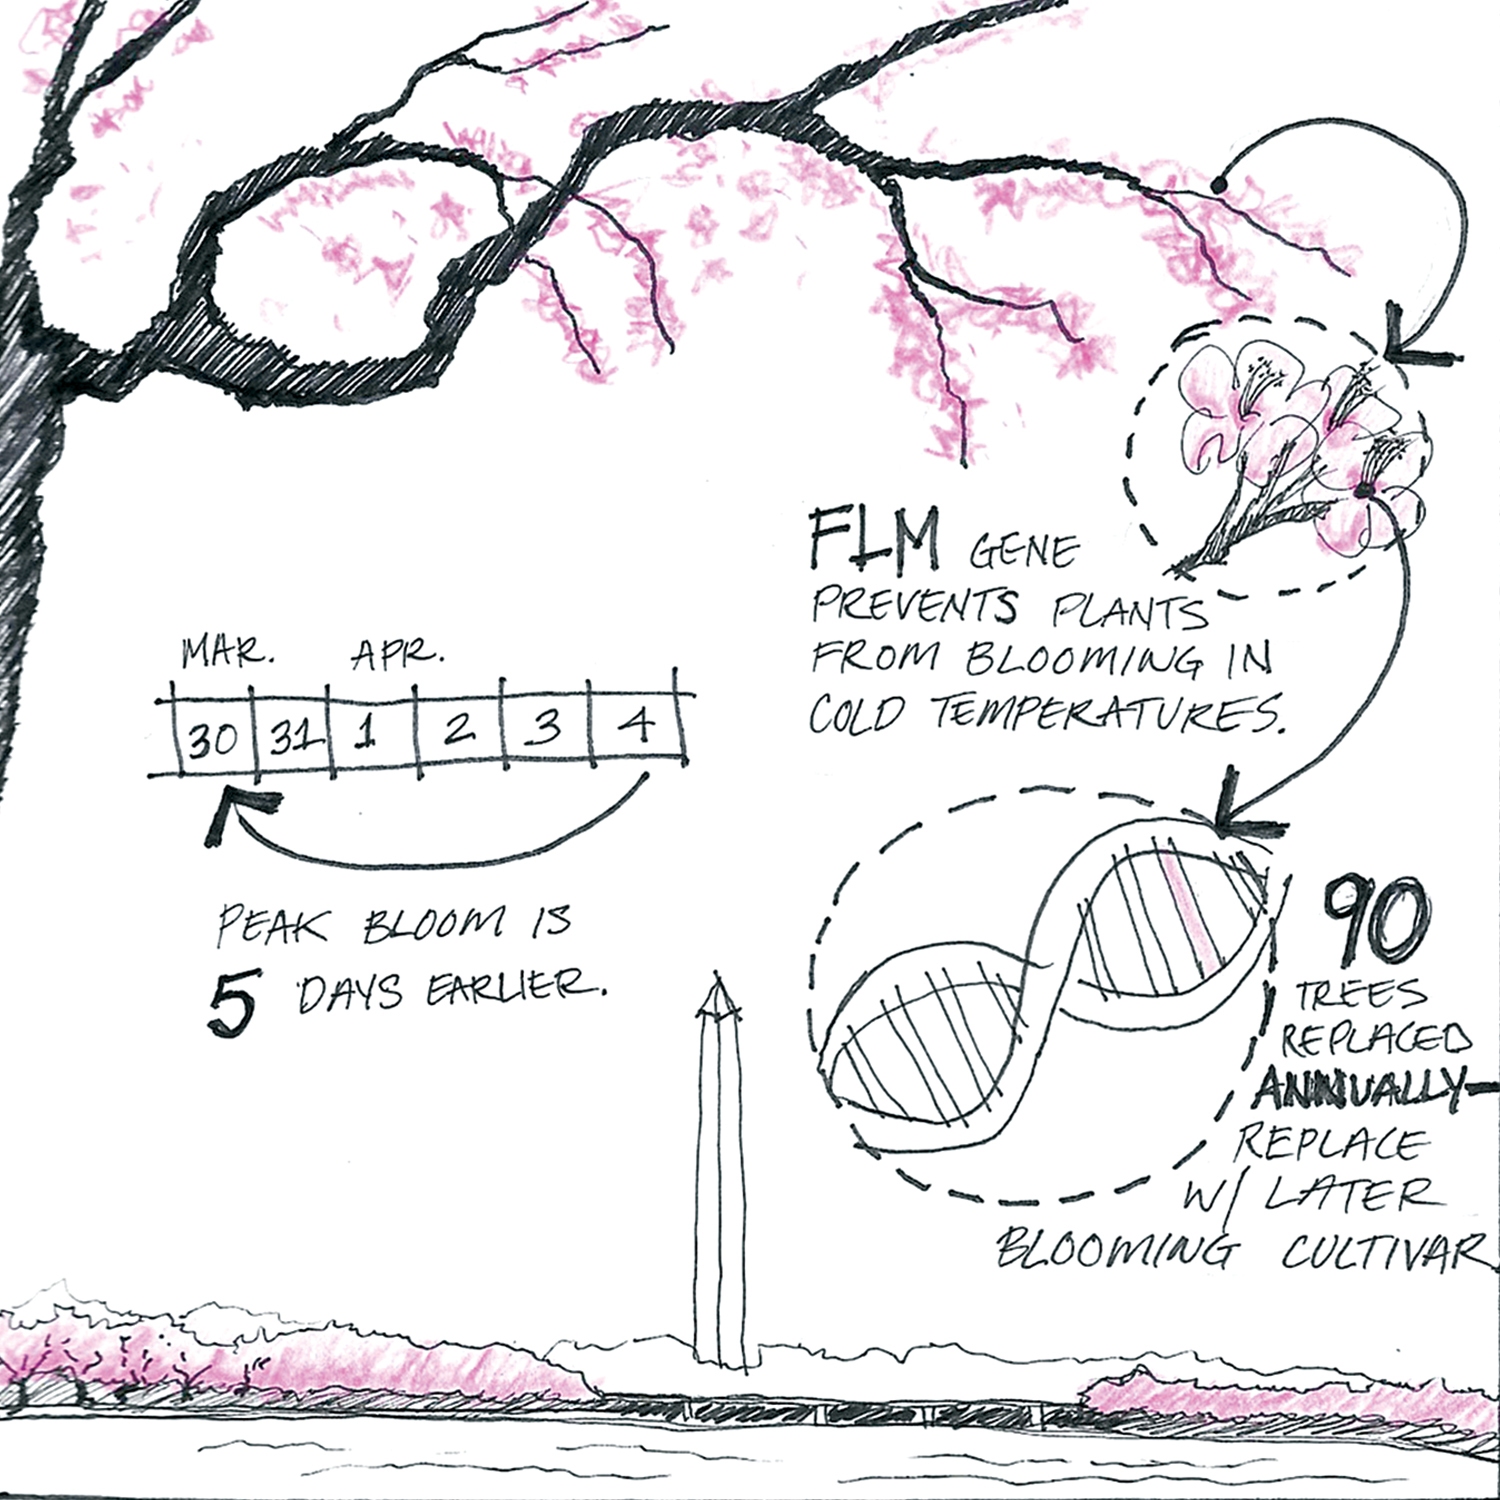 FLM GENE
PREVENTS PLANTS
FROM BLOOMING IN
COLD TEMPERATURES.
MAR. APR.
30 31 1 2 3 4
PEAK BLOOM IS
5 DAYS EARLIER.
90
TREES
REPLACED
ANNUALLY—
REPLACE
W/ LATER
BLOOMING CULTIVAR